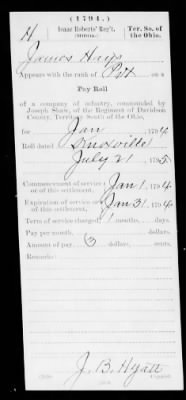 (1794.)
H Isaac Roberts' Reg't. Ter. So. of the Ohio.
James Hays
Appears with the rank of Pvt on a
Pay Roll
of a company of infantry, commanded by
Joseph Shaw, of the Regiment of Davidson
County, Territory South of the Ohio,
for Jan 1794
Roll dated Knoxville
July 21 1795
Commencement of service of this settlement, Jan 1, 1794
Expiration of service of this settlement, Jan 31, 1794
Term of service charged, 1 months, days.
Pay per month, dollars.
Amount of pay, 3 dollars, cents.
Remarks:
J. B. Hyatt
Copyist.